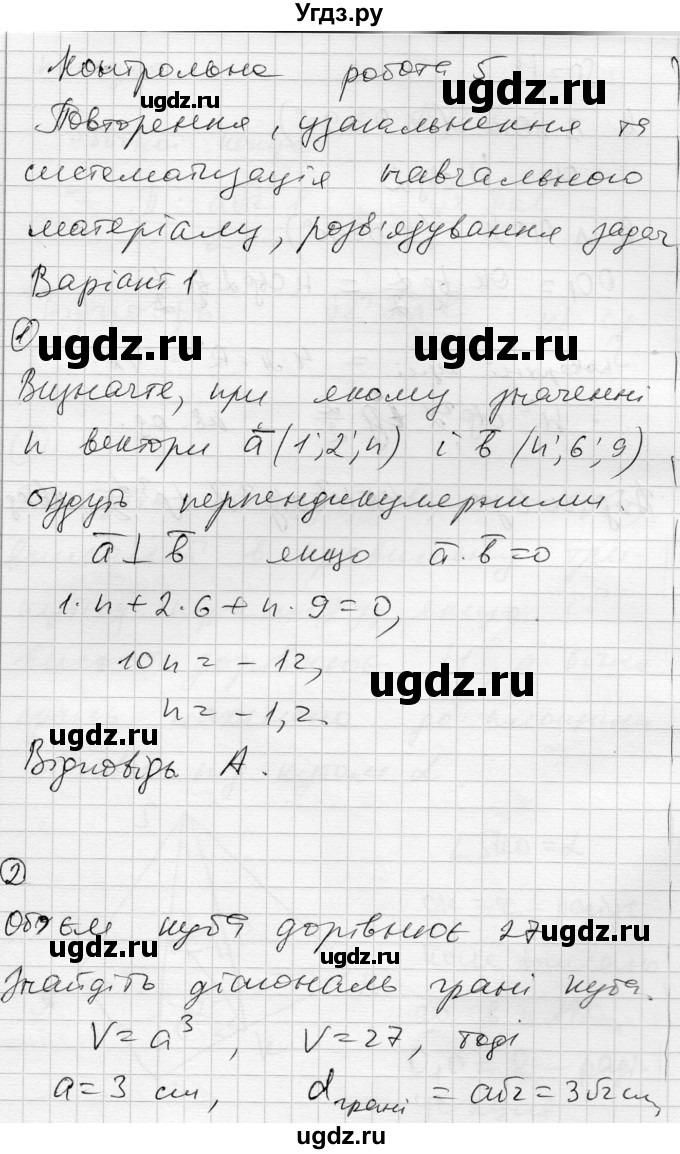 Угдз.ру
Контрольна робота 5
Повторення, узагальнення та
систематизація навчального
матеріалу, розв'язування задач
Варіант 1
1
ugdz.ru
ugdz.ru
ugdz.ru
Визначте, при якому значенні
n вектори a (1; 2; n) і b (n; 6; 9)
будуть перпендикулярними.
a ⊥ b якщо a · b = 0
1 · n + 2 · 6 + n · 9 = 0,
10n = -12,
ugdz.ru
n = -1,2.
ugdz.ru
Відповідь А.
2
Об'єм куба дорівнює 27
ugdz.ru
Знайдіть діагональ грані куба.
V = a³, V = 27, тоді
a = 3 см, d грані = a√2 = 3√2 см,
ugdz.ru